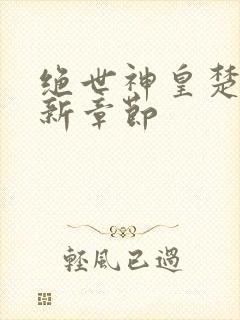 绝世神皇楚
新章節
輕風已過